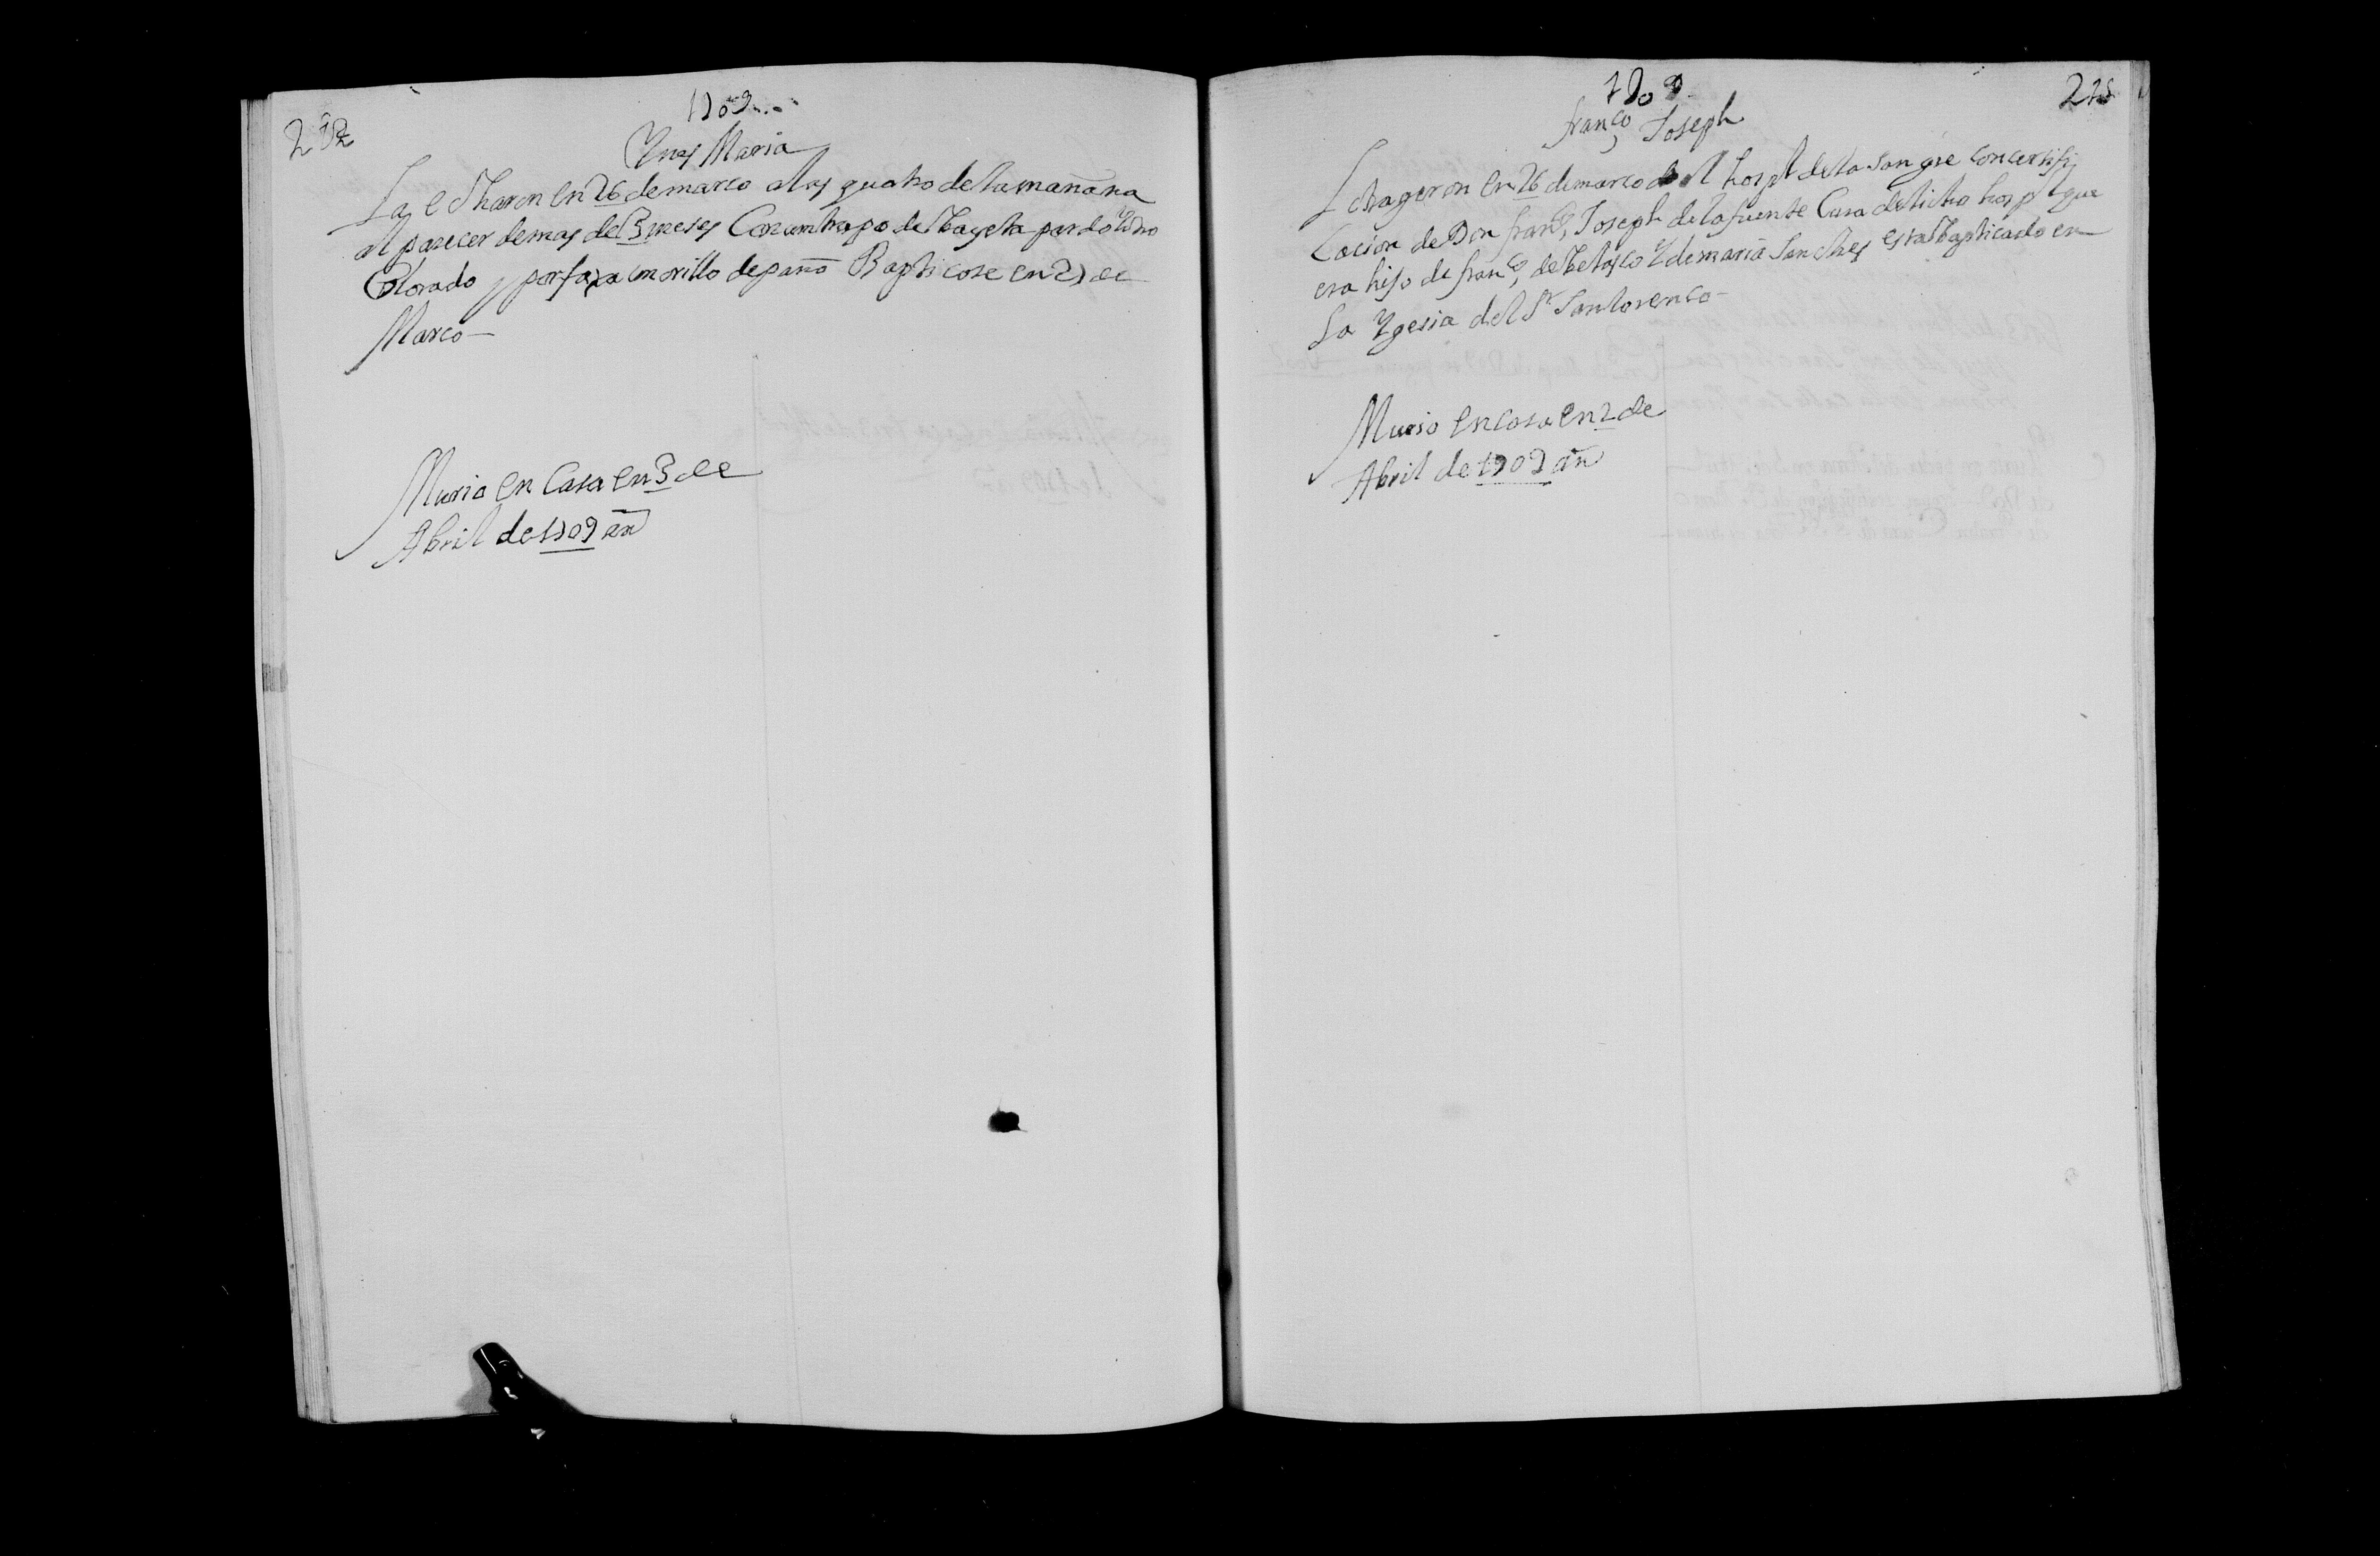 1709
Ynes Maria
La Echaron en 26 de março a las quatro de la mañana
al parecer de mas de 3 meses Con un trapo de Bayeta pardo y otro
Colorado y por faxa morillo de paño Baptiçose en 27 de
Março
Murio en Casa en 3 de
Abril de 1709 añ
1709
franco Joseph
Lo trageron en 26 de março del hospl de la Sangre con certifi
Cacion de Don franco Joseph de la fuente Cura de dicho hospl que
era hijo de franco de Belasco Y de maria Sanches esta Baptiçado en
la Ygesia del Sr San lorenço
Murio en Casa en 2 de
Abril de 1709 añ